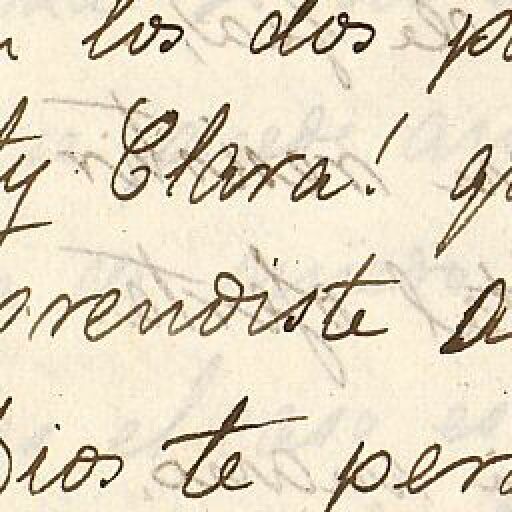 los dos
ty Clara!
prendiste a
Dios te per